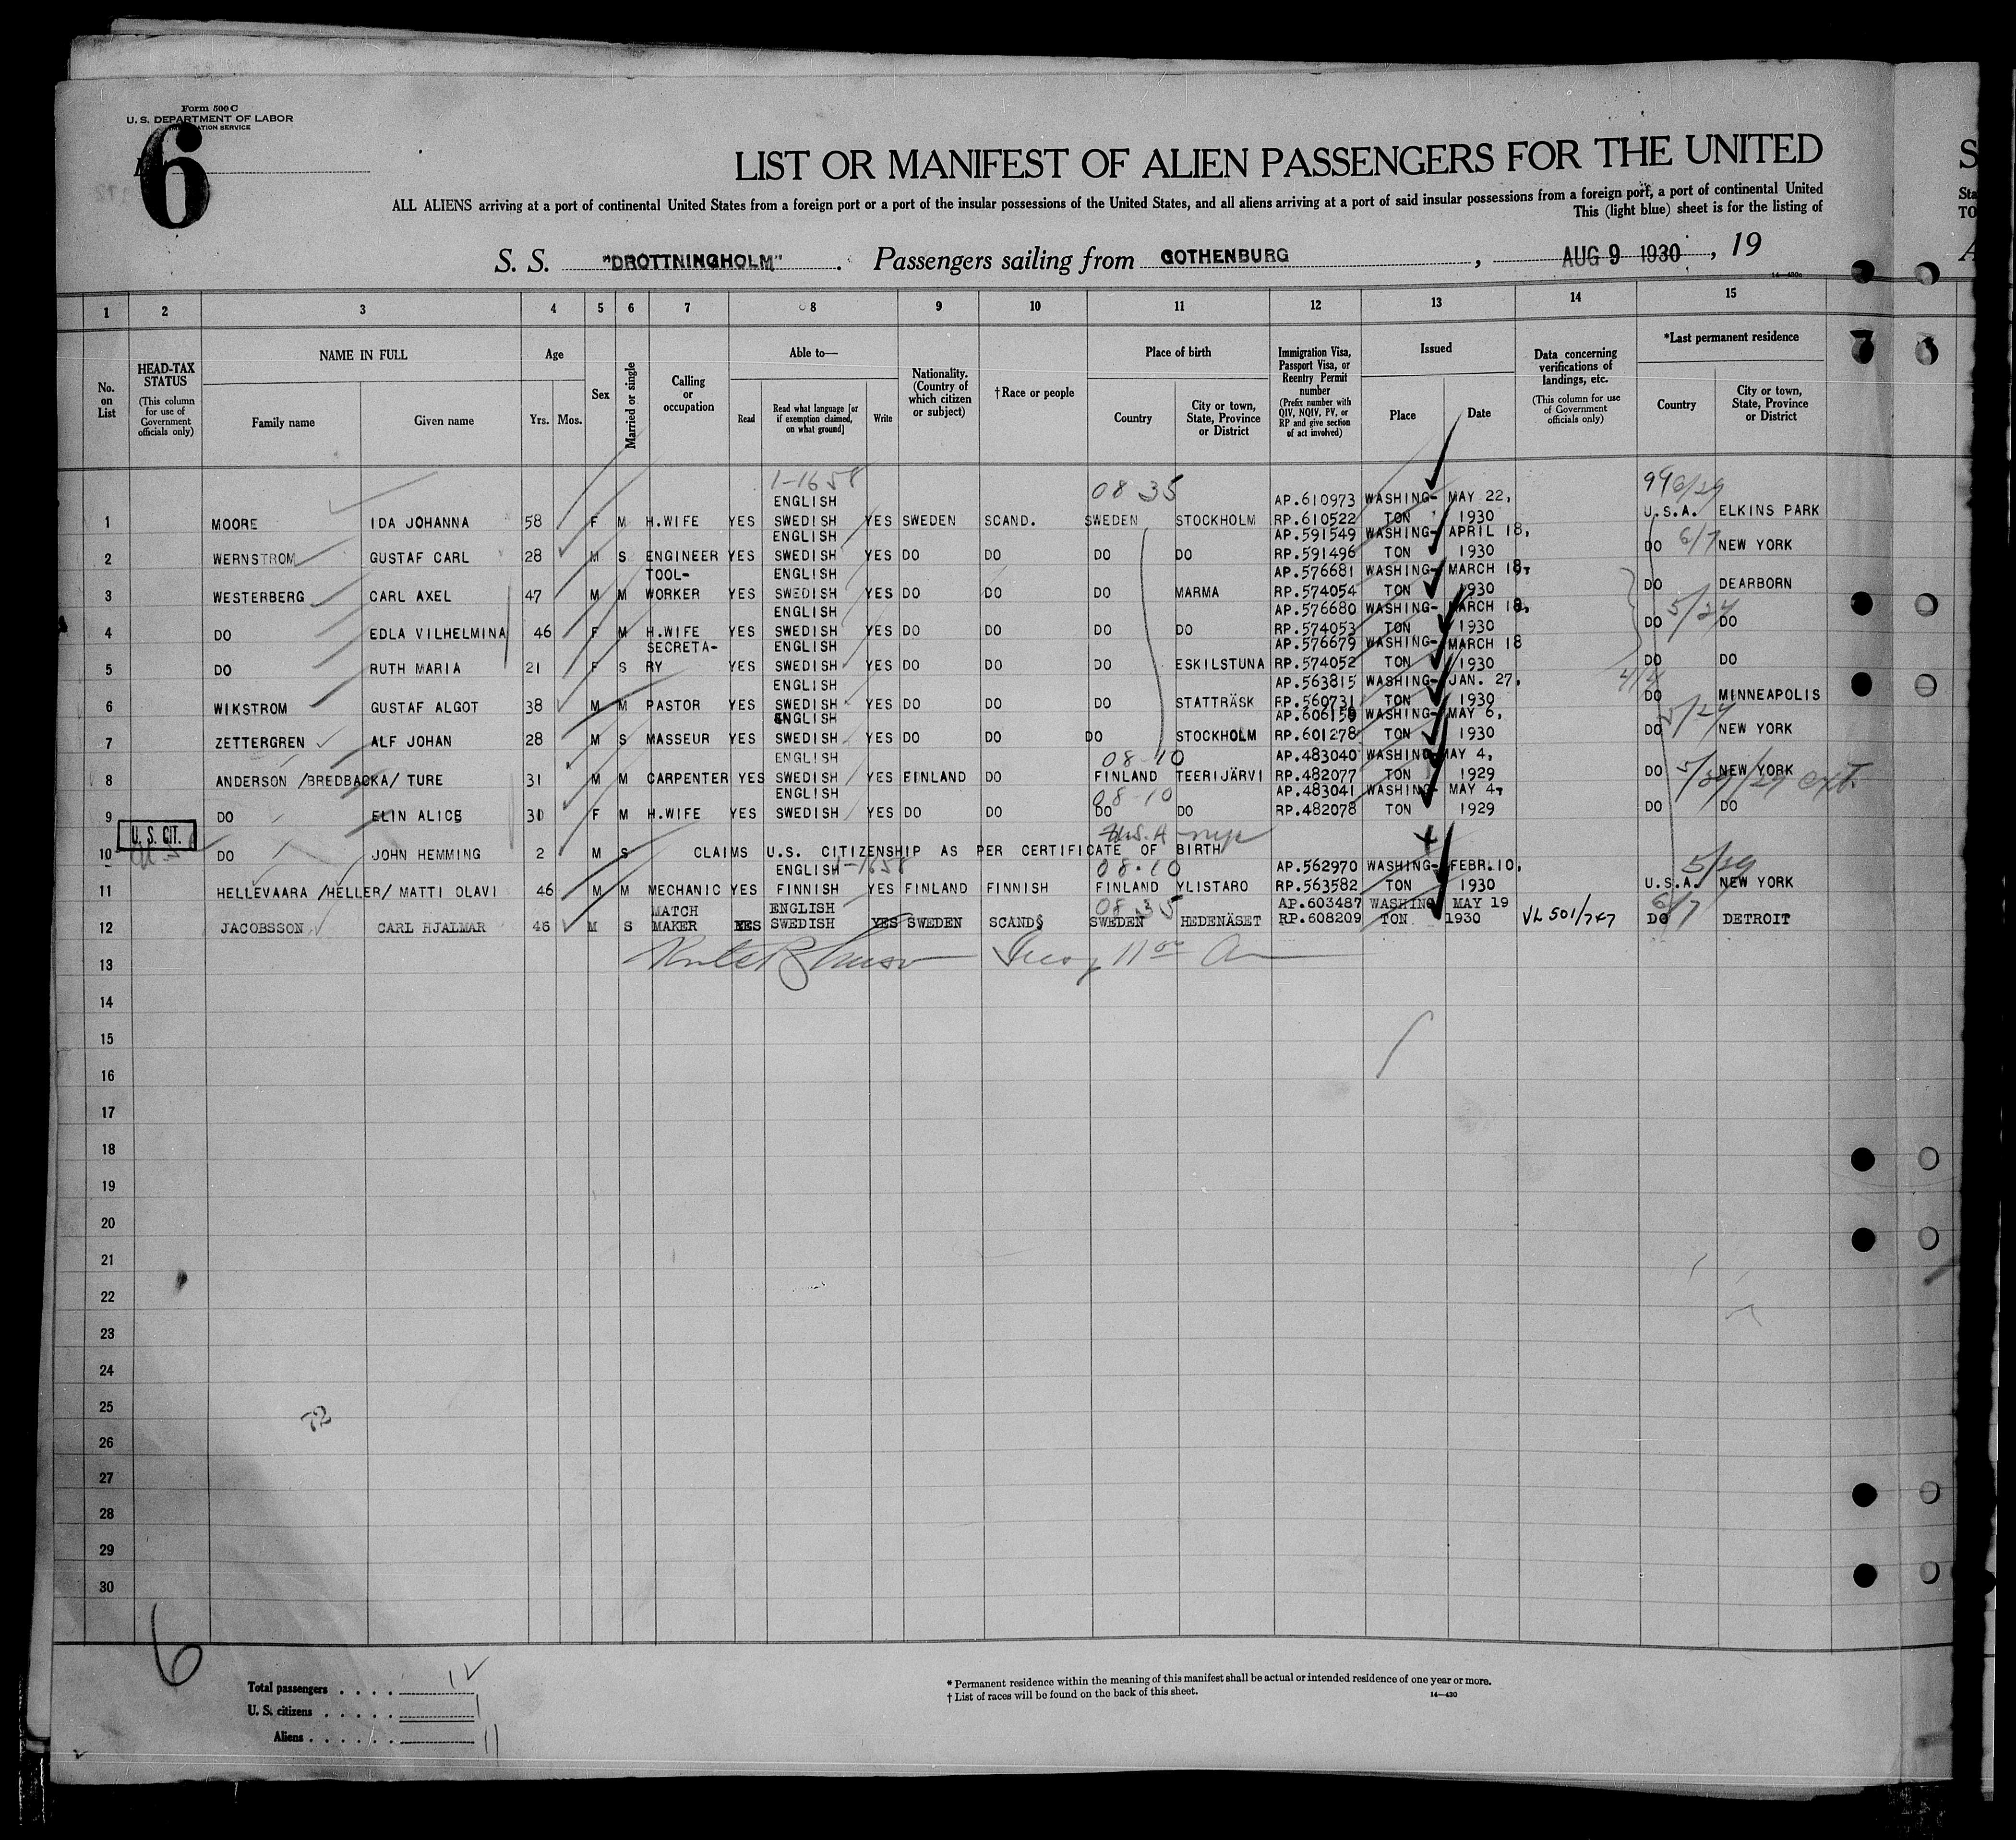 Form 500 C
U. S. DEPARTMENT OF LABOR
6
LIST OR MANIFEST OF ALIEN PASSENGERS FOR THE UNITED
ALL ALIENS arriving at a port of continental United States from a foreign port or a part of the insular possessions of the United States, and all aliens arriving at a port of said insular possessions from a foreign port, a port of continental United
This (light blue) sheet is for the listing of
S. S. "DROTTNINGHOLM" . Passengers sailing from GOTHENBURG , AUG 9 1930 , 19
1 2 3 4 5 6 7 8 9 10 11 12 13 14 15
No. on List
HEAD-TAX STATUS (This column for use of Government officials only)
NAME IN FULL
Family name Given name
Age
Yrs. Mos.
Sex
Married or single
Calling or occupation
Able to—
Read Read what language [or if exemption claimed, on what ground] Write
Nationality. (Country of which citizen or subject)
†Race or people
Place of birth
Country City or town, State, Province or District
Immigration Visa, Passport Visa, or Reentry Permit number (Prefix number with QIV, NQIV, PV, or RP and give section of act involved)
Issued
Place Date
Data concerning verifications of landings, etc. (This column for use of Government officials only)
*Last permanent residence
Country City or town, State, Province or District
1-1658 08 35
ENGLISH AP.610973 WASHING- MAY 22,
1 MOORE IDA JOHANNA 58 F M H.WIFE YES SWEDISH YES SWEDEN SCAND. SWEDEN STOCKHOLM RP.610522 TON 1930 U.S.A. ELKINS PARK
ENGLISH AP.591549 WASHING- APRIL 18,
2 WERNSTROM GUSTAF CARL 28 M S ENGINEER YES SWEDISH YES DO DO DO DO RP.591496 TON 1930 DO 6/7 NEW YORK
TOOL- ENGLISH AP.576681 WASHING- MARCH 18,
3 WESTERBERG CARL AXEL 47 M M WORKER YES SWEDISH YES DO DO DO MARMA RP.574054 TON 1930 DO DEARBORN
ENGLISH AP.576680 WASHING- MARCH 18,
4 DO EDLA VILHELMINA 46 F M H.WIFE YES SWEDISH YES DO DO DO DO RP.574053 TON 1930 DO 5/24 DO
SECRETA- ENGLISH AP.576679 WASHING- MARCH 18
5 DO RUTH MARIA 21 F S RY YES SWEDISH YES DO DO DO ESKILSTUNA RP.574052 TON 1930 DO DO
ENGLISH AP.563815 WASHING- JAN. 27,
6 WIKSTROM GUSTAF ALGOT 38 M M PASTOR YES SWEDISH YES DO DO DO STATTRÄSK RP.560731 TON 1930 DO MINNEAPOLIS
ENGLISH AP.606159 WASHING- MAY 6,
7 ZETTERGREN ALF JOHAN 28 M S MASSEUR YES SWEDISH YES DO DO DO STOCKHOLM RP.601278 TON 1930 DO 5/24 NEW YORK
ENGLISH 08-10 AP.483040 WASHING- MAY 4,
8 ANDERSON /BREDBACKA/ TURE 31 M M CARPENTER YES SWEDISH YES FINLAND DO FINLAND TEERIJÄRVI RP.482077 TON 1929 DO NEW YORK
ENGLISH 08-10 AP.483041 WASHING- MAY 4,
9 DO ELIN ALICE 30 F M H.WIFE YES SWEDISH YES DO DO DO DO RP.482078 TON 1929 DO DO
U. S. CIT.
10 DO JOHN HEMMING 2 M S CLAIMS U.S. CITIZENSHIP AS PER CERTIFICATE OF BIRTH
ENGLISH 1-1658 08-10 AP.562970 WASHING- FEBR.10, 5/29
11 HELLEVAARA /HELLER/ MATTI OLAVI 46 M M MECHANIC YES FINNISH YES FINLAND FINNISH FINLAND YLISTARO RP.563582 TON 1930 U.S.A. NEW YORK
MATCH ENGLISH 08 35 AP.603487 WASHING MAY 19 6/7
12 JACOBSSON CARL HJALMAR 46 M S MAKER YES SWEDISH YES SWEDEN SCAND§ SWEDEN HEDENÄSET RP.608209 TON 1930 VL 501/747 DO DETROIT
13
14
15
16
17
18
19
20
21
22
23
24
25
72
26
27
28
29
30
6
Total passengers . . . . 12
U. S. citizens . . . . . 1
Aliens . . . . . . 11
* Permanent residence within the meaning of this manifest shall be actual or intended residence of one year or more.
† List of races will be found on the back of this sheet.
14—430